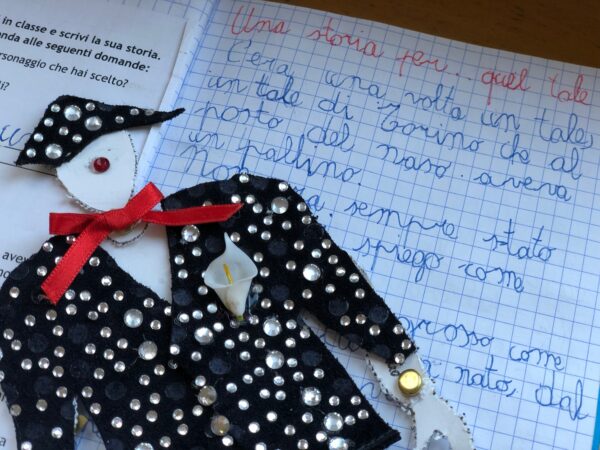 in classe e scrivi la sua storia.
onda alle seguenti domande:
ersonaggio che hai scelto?
di?
avev
Una storia per.. quel tale
C'era una volta un tale,
un tale di Torino che al
posto del naso aveva
un pallino.
Non sempre stato
spiego come
grosso come
nato, dal